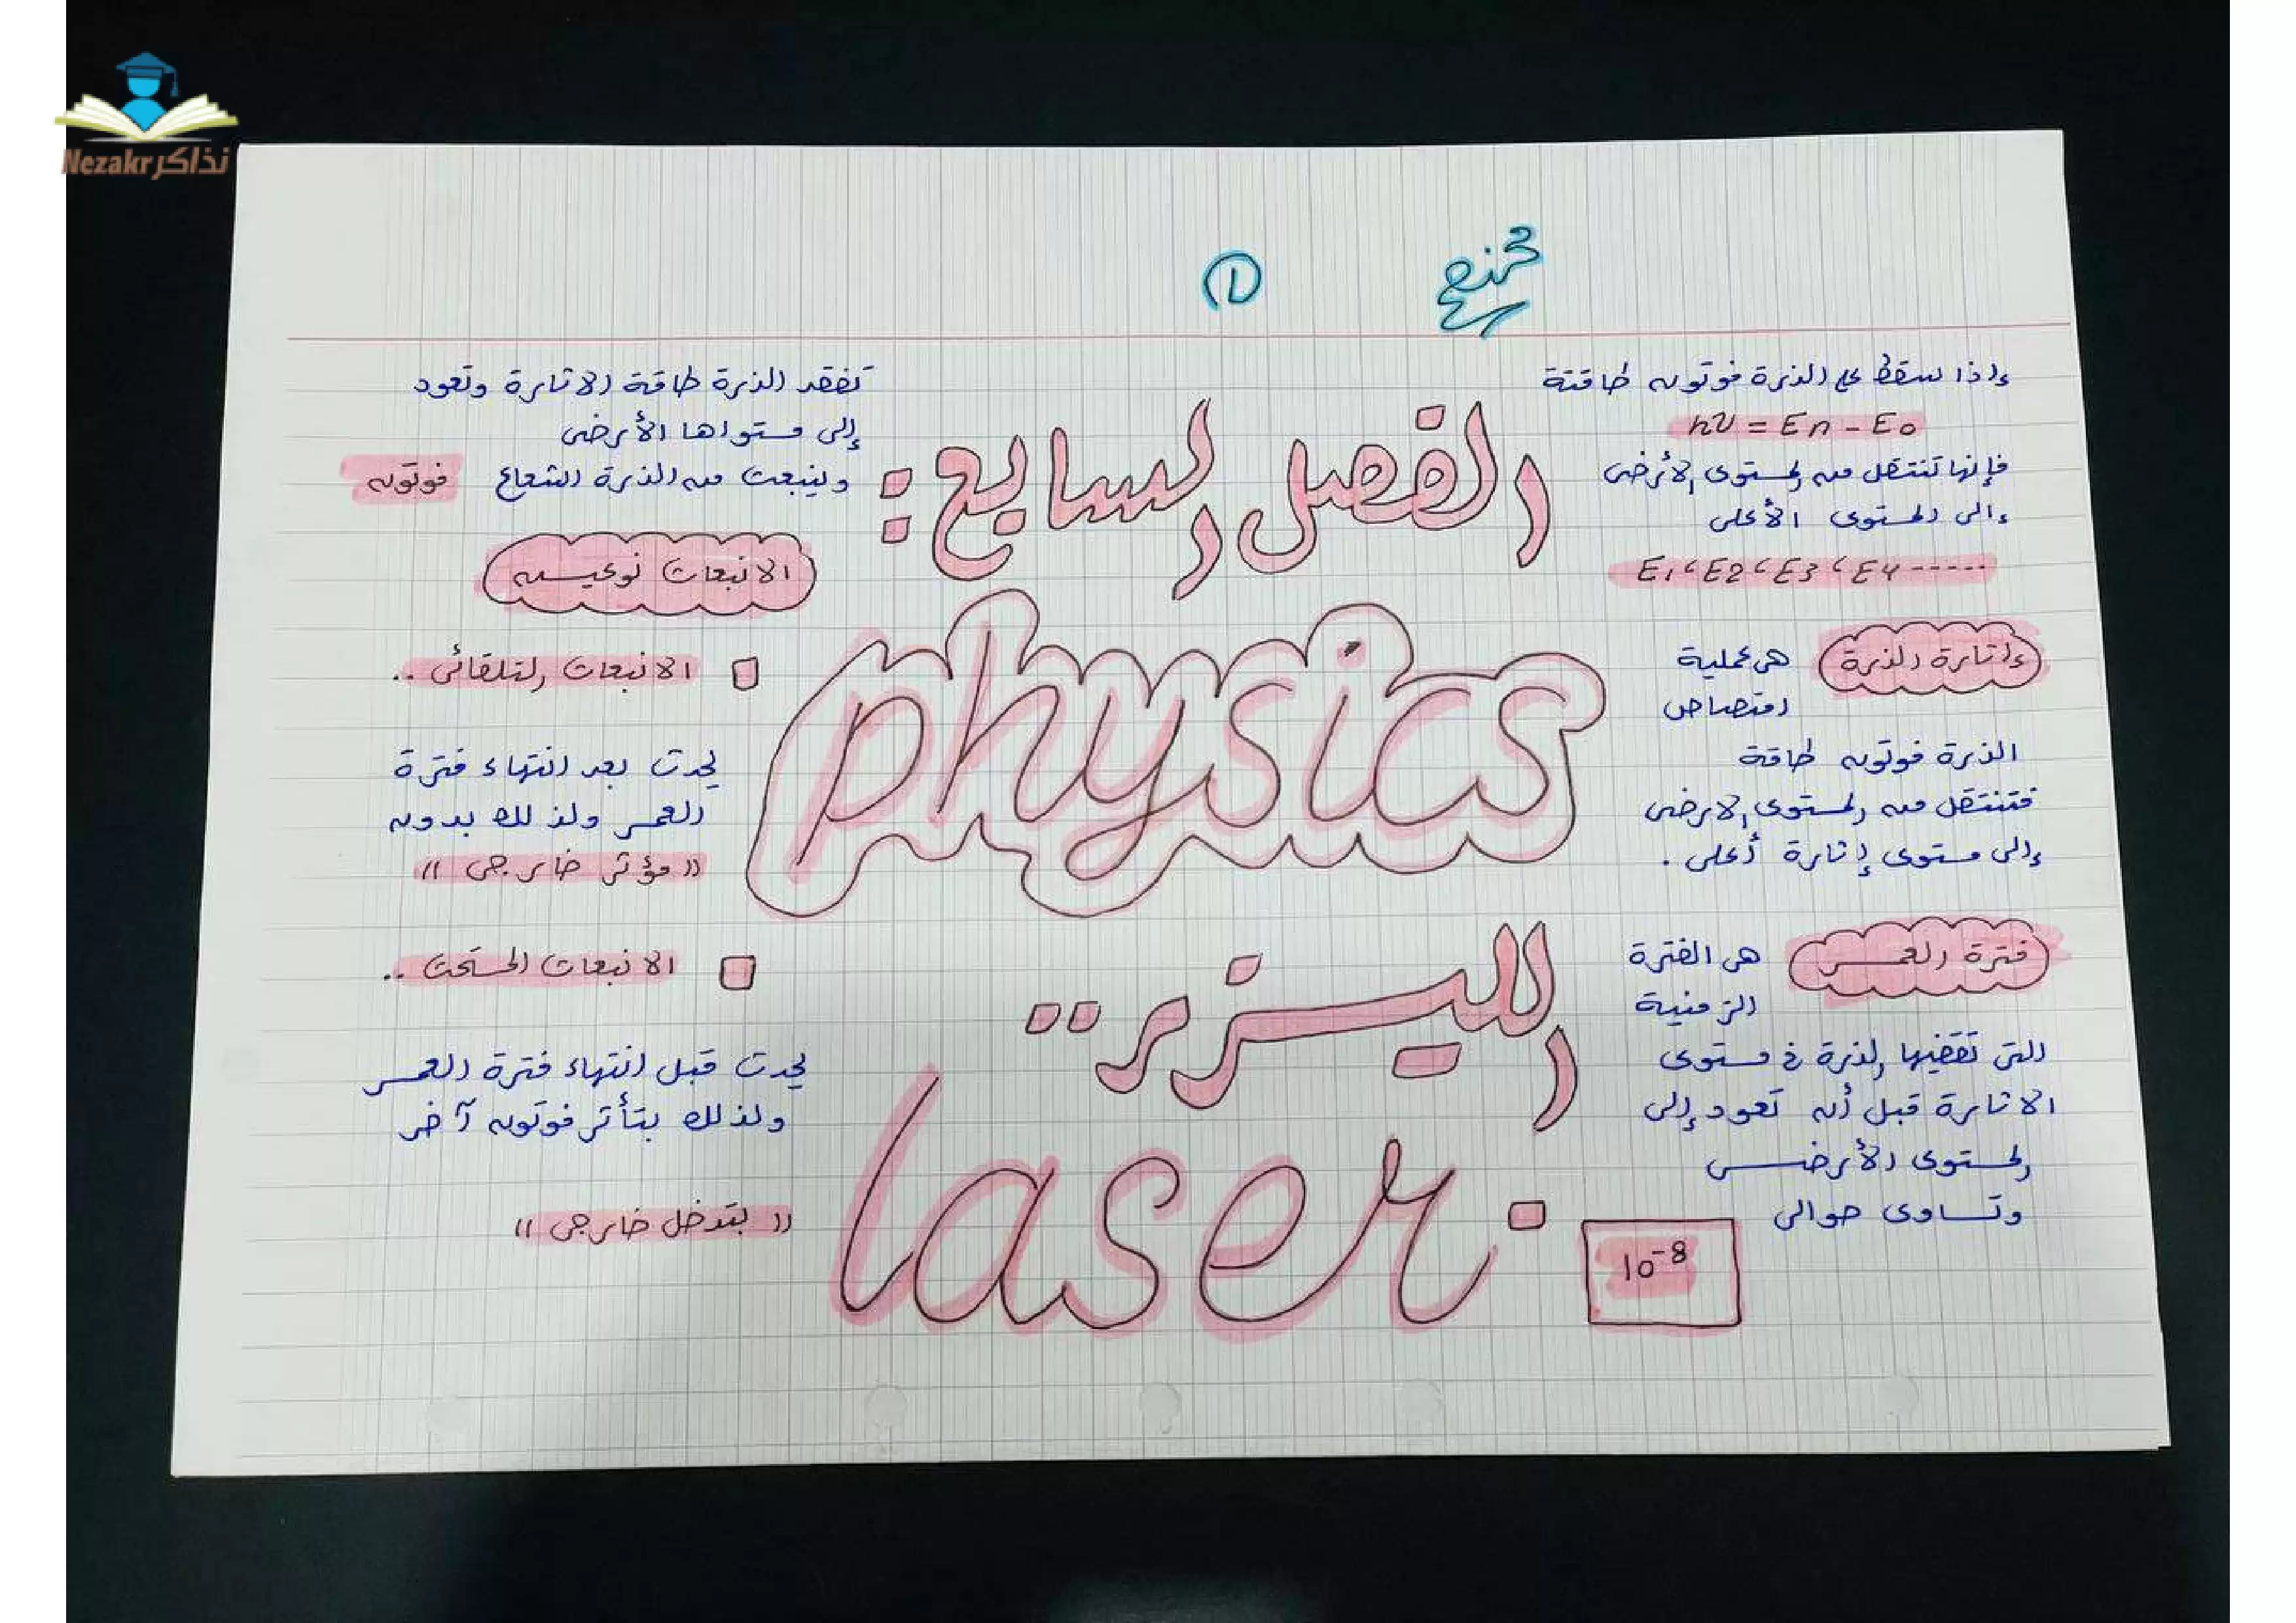 نذاكر Nezakr
①
إذا سقط على الذرة فوتون طاقتة
hν = En - E0
فإنها تنتقل من المستوى الأرضى
إلى المستوى الأعلى
E1 ، E2 ، E3 ، E4 -----
إثارة الذرة هى عملية
امتصاص
الذرة فوتون طاقة
فتنتقل من المستوى الارضى
إلى مستوى إثارة أعلى .
فترة العمر هى الفترة
الزمنية
التى تقضيها الذرة فى مستوى
الاثارة قبل أن تعود إلى
المستوى الأرضى
وتساوى حوالى
10-8
الفصل السابع :
physics
الليزر ..
laser .
تفقد الذرة طاقة الاثارة وتعود
إلى مستواها الأرضى
وينبعث من الذرة الشعاع فوتون
الانبعاث نوعين
الانبعاث التلقائى ..
يحدث بعد انتهاء فترة
العمر ولذلك بدون
(( مؤثر خارجى ))
الانبعاث المستحث ..
يحدث قبل انتهاء فترة العمر
ولذلك بتأثر فوتون آخر
(( بتدخل خارجى ))